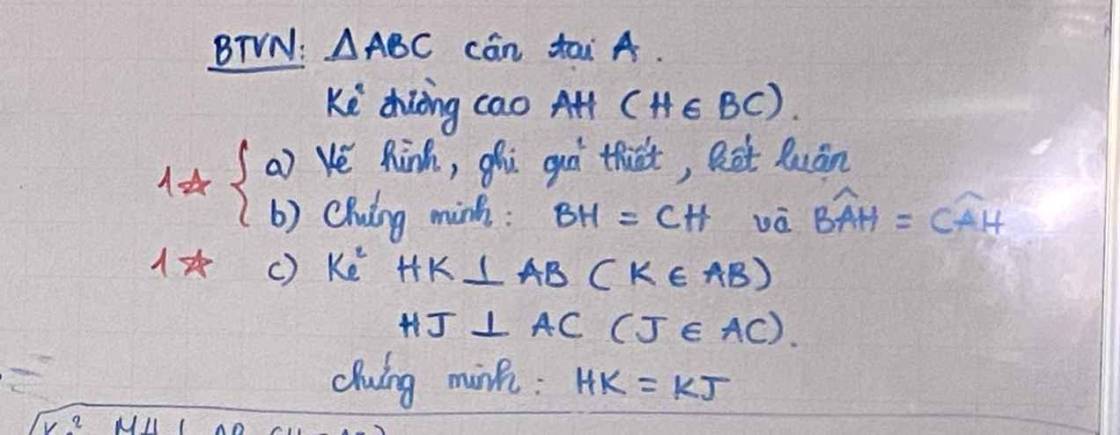 BTVN: ΔABC cân tại A.
Kẻ đường cao AH (H ∈ BC).
1☆ { a) Vẽ hình, ghi giả thiết, kết luận
b) Chứng minh: BH = CH và BÂH = CÂH
1☆ c) Kẻ HK ⊥ AB (K ∈ AB)
HJ ⊥ AC (J ∈ AC).
chứng minh: HK = KJ